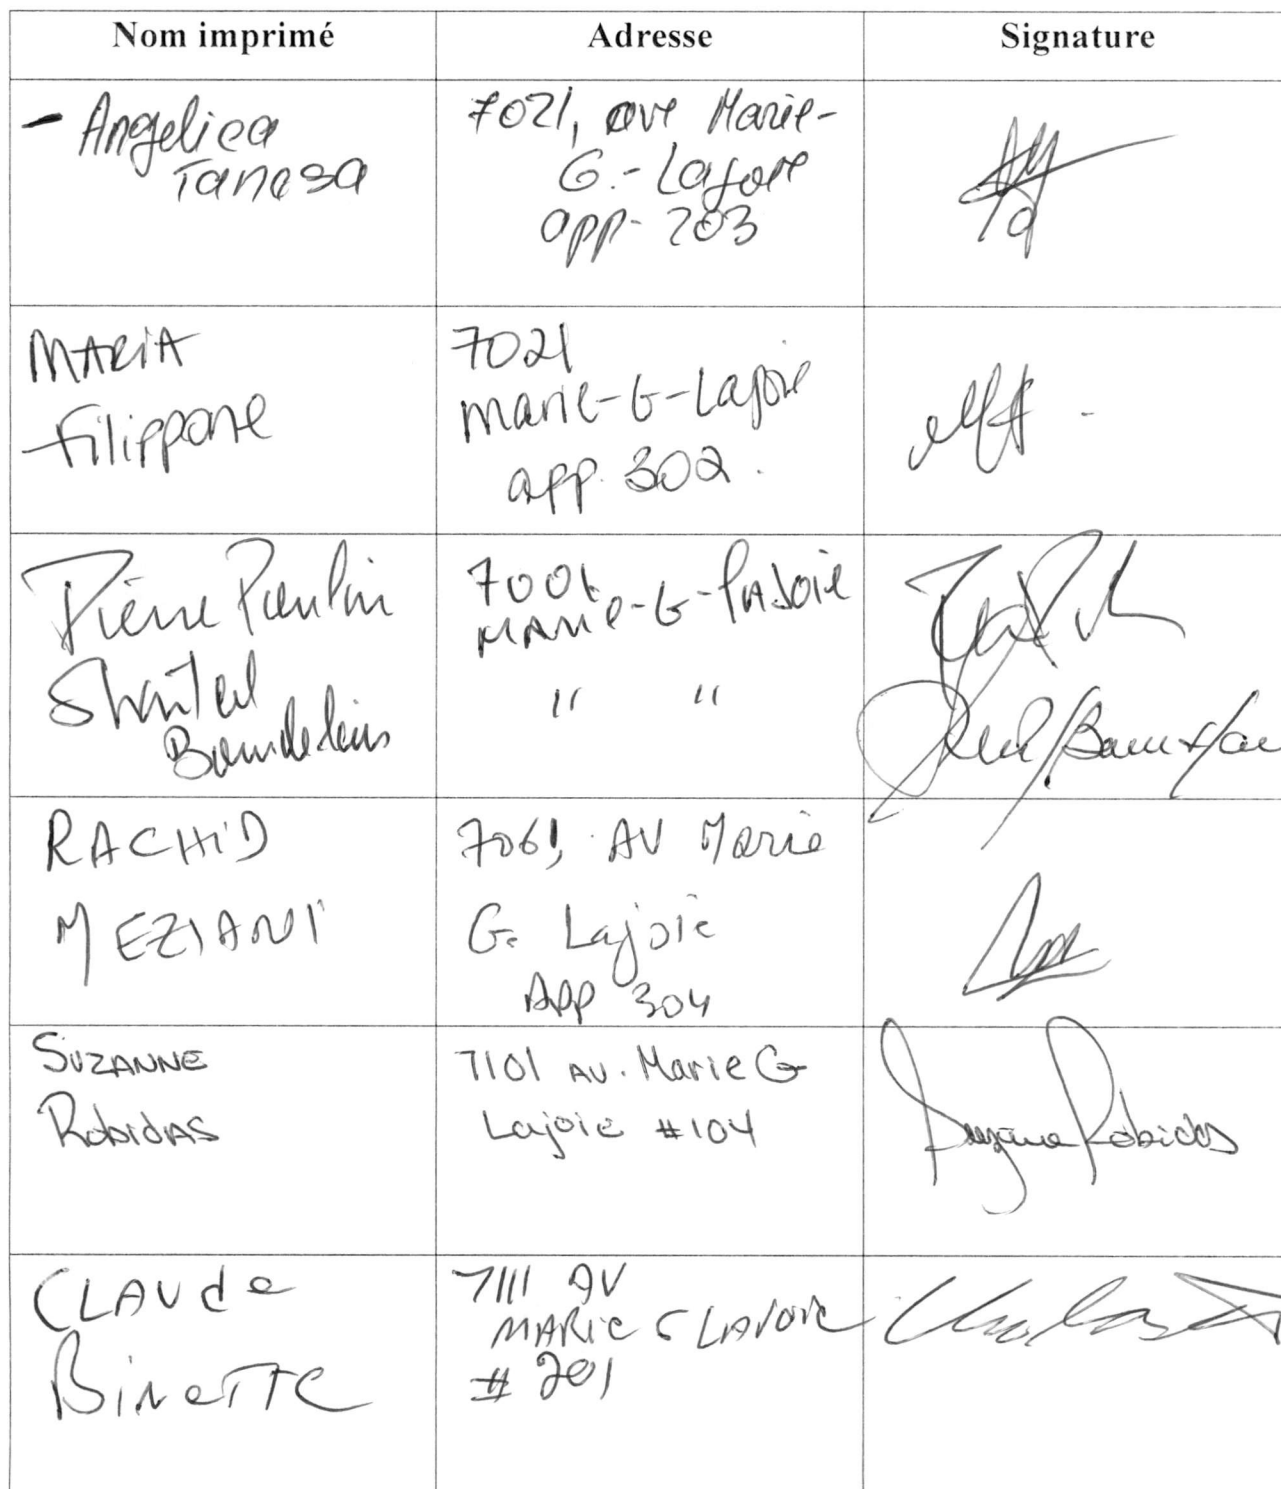 Nom imprimé Adresse Signature
- Angelica
Tanasa
7021, ave Marie-
G.-Lajoie
app- 203
MARIA
Filippone
7021
Marie-G-Lajoie
app. 302.
Pierre Paulin
Shantal
7001
MARIE-G-LAJOIE
" "
RACHID
MEZIANI
7061, AV Marie
G. Lajoie
App 304
SUZANNE
Robidas
7101 AV. Marie G
Lajoie #104
Suzanne Robidas
CLAUde
BINeTTe
7111 AV
MARie G LAJOIE
# 201